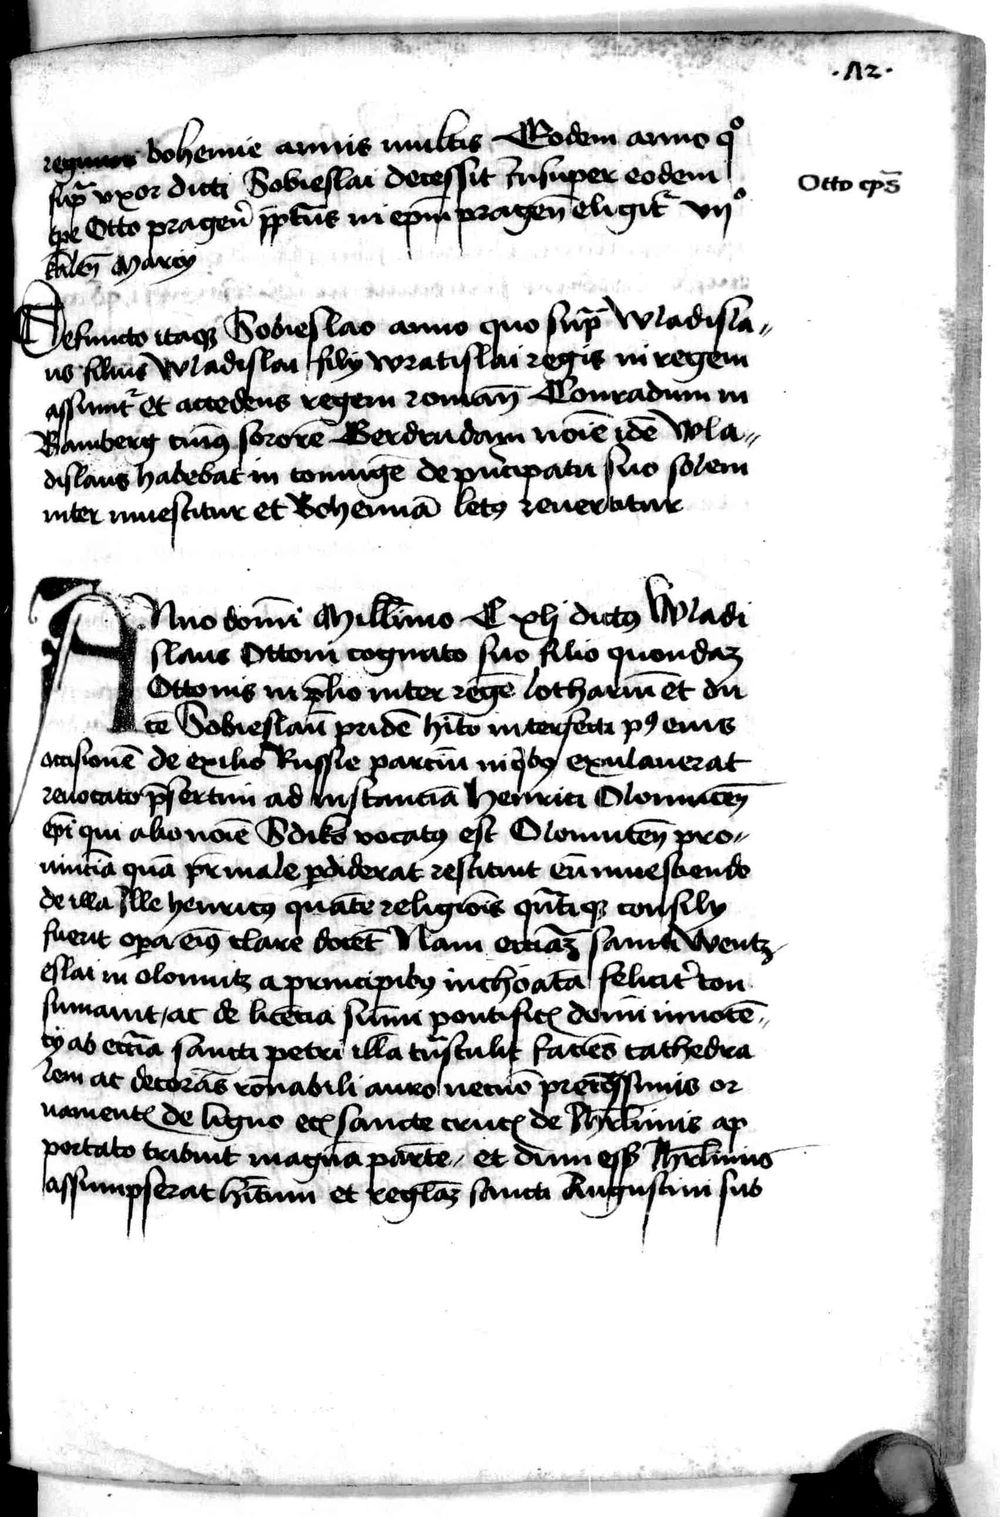 ·A2·
bohemie annis multis Eodem anno qͦ
supᷓ vxor dicti Sobieslai decessit Insuper eodem
Otto ep̄s
tpe Otto pragen̄ pp̄tus in ep̄m pragen̄ eligitᷣ vijͦ
kalen̄ Marcij
Defuncto itaqꝫ Sobieslao anno quo supᷓ Wladisla„
us filius Wladislai filij wratislai regis in regem
assumitᷣ et accedens regem roman̄ Conradum in
Bamberg cuiꝰ sororē Gerdrudam noīe idē Wla„
dislaus habebat in coniugē de pͥncipatu suo solem
niter inuestitur et Bohemiā letꝰ reuertitur
Anno domī Millīmo C xlj dictꝰ Wladi
slaus Ottoni cognato suo filio quondaꝫ
Ottonis in p̄lio inter regē lothariū et du
cē Sobieslaū pridē hīto interfecti pꝰ eius
occisionē de exilio Russie parciū in qͥbꝰ exulauerat
reuocato p̄sertim ad instanciā Henrici Olomucen̄
ep̄i qui alio noīe Sdiks vocatꝰ est Olomucen̄ pro„
uinciā quā pr̄ male ꝑdiderat restituit eū inuestiendo
de illa Ille henricꝰ quāte religiois qn̄tiqꝫ consilij
fuerit oꝑa eiꝰ clare docēt Nam ecciaꝫ sancti Wentz
eslai in olomutz a principibꝰ inchoatā felicitᷣ con
sumauit / ac de licēcia sūmi pontificꝭ domī innocē„
cij ab eccīa sancti petri illā tͣnstulit faciēs cathedra
lem ac decorās rōnabili auro necnō preciosissimis or
namentꝭ de ligno eciꝫ sancte crucꝭ de Ihrlīmis ap
portato tribuit magnā partē„ et dum eēt Ihrlīmis
assumpserat hītum et reglaꝫ sancti Augustini sub